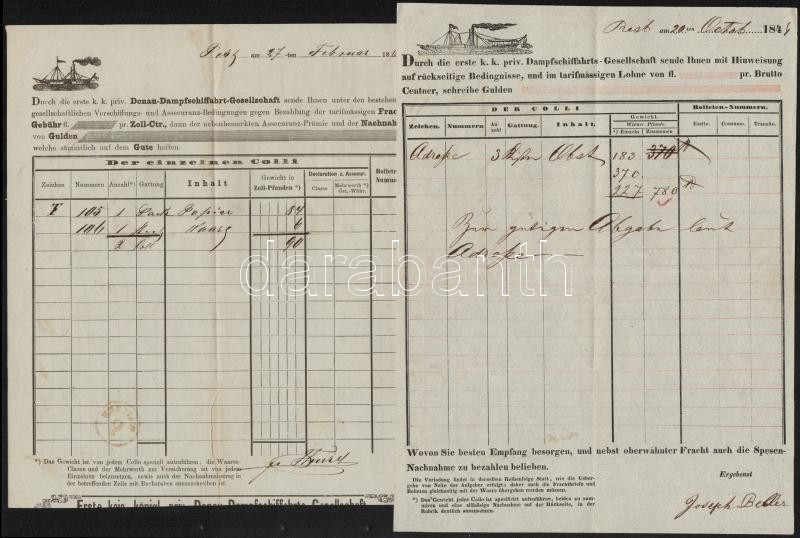 Pest am 27ten Februar 18
Durch die erste k. k. priv. Donau-Dampfschiffahrt-Gesellschaft sende Ihnen unter den bestehen
gesellschaftlichen Verschiffungs- und Assecuranz-Bedingungen gegen Bezahlung der tarifmässigen Frac
Gebühr fl. pr. Zoll-Ctr., dann der nebenbemerkten Assecuranz-Prämie und der Nachnah
von Gulden
welche sämmtlich auf dem Gute haften.
Der einzelnen Colli
Zeichen Nummern Anzahl*) Gattung Inhalt Gewicht in Zoll-Pfunden *) Declaration z. Assecur. Bollete
Classe Mehrwerth *) Oest.-Währ. Numm
105 1 Pack Papier 84
106 1 6
2 Coll 90
*) Das Gewicht ist von jedem Collo speciell aufzuführen, die Waaren-
Classe und der Mehrwerth zur Versicherung ist von jedem
Einzelnen beizusetzen, sowie auch der Nachnahmsbetrag in
der betreffenden Zeile mit Buchstaben auszuschreiben ist
Erste kais. königl. priv. Donau-Dampfschiffahrts-Gesellschaft
Pest am 20ten Octob. 184
Durch die erste k. k. priv. Dampfschiffahrts-Gesellschaft sende Ihnen mit Hinweisung
auf rückseitige Bedingnisse, und im tarifmässigen Lohne von fl. pr. Brutto
Centner, schreibe Gulden
DER COLLI Bolleten-Nummern.
Zeichen. Nummern Anzahl Gattung. Inhalt. Gewicht. Wiener Pfunde. *) Einzeln Zusammen Essito. Consumo. Transito.
Adresse 3 Kisten Obst 183 370
370.
227 780
Zur gütigen Abgabe laut
Adresse
Wovon Sie besten Empfang besorgen, und nebst oberwähnter Fracht auch die Spesen-
Nachnahme zu bezahlen belieben.
Die Verladung findet in derselben Reihenfolge Statt, wie die Ueber-
gabe von Seite der Aufgeber erfolgt; daher auch die Frachtbriefe und
Bolleten gleichzeitig mit der Waare übergeben werden müssen.
*) Das Gewicht jedes Collo ist specificirt aufzuführen, beides zu sum-
miren und eine allfällige Nachnahme auf der Rückseite, in der
Rubrik deutlich anzusetzen.
Ergebenst
Joseph Beller
darabanth